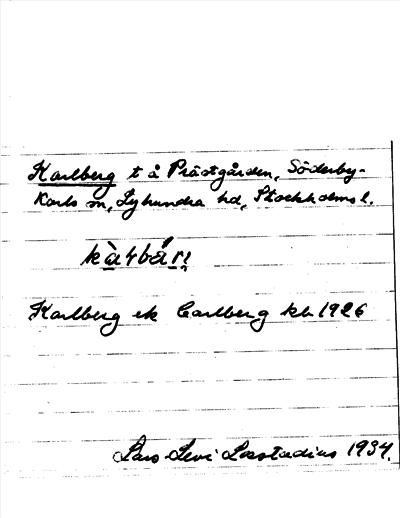 Karlberg t å Prästgården, Söderby-
Karls sn, Lyhundra hd, Stockholms l.
Karlberg ek Carlberg kb 1926
Lars Levi Læstadius 1934.